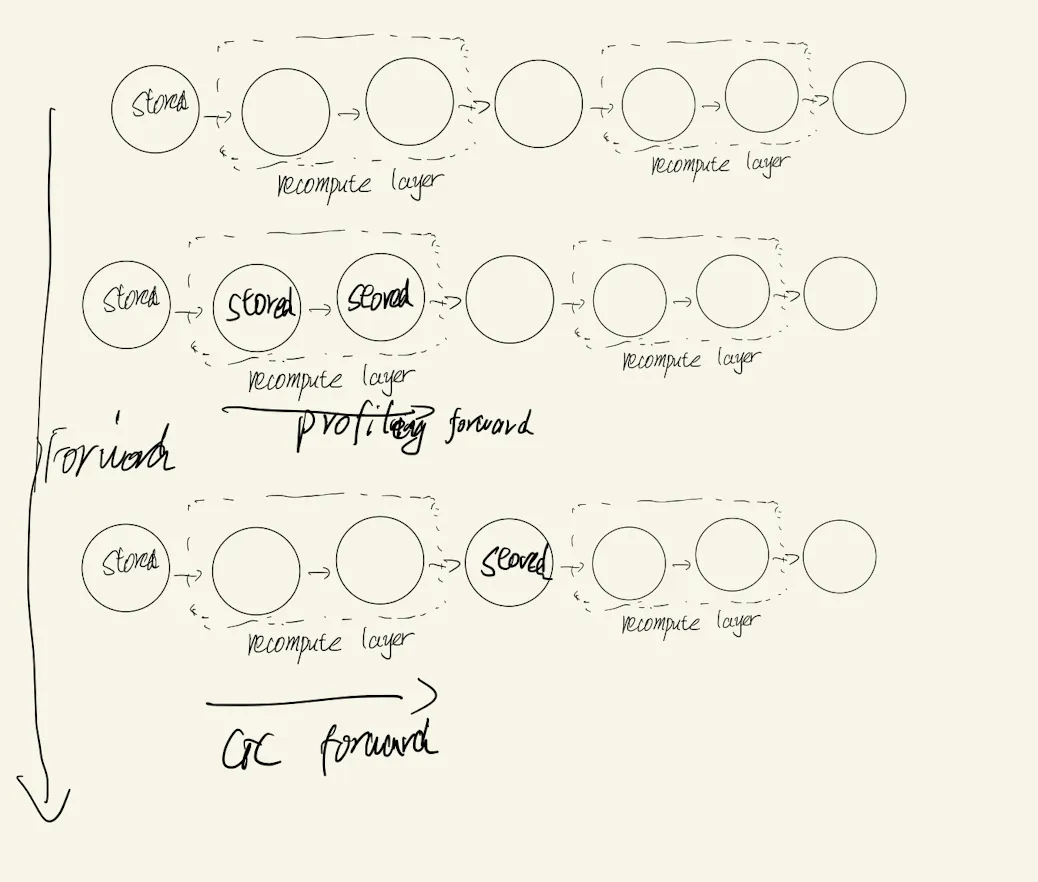 stored
recompute layer
recompute layer
stored stored stored
recompute layer
recompute layer
profiling forward
Forward
stored stored
recompute layer
recompute layer
GC forward